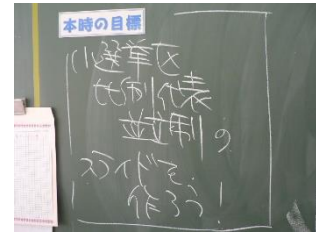 本時の目標
小選挙区
比例代表
並立制の
スライドを、
作ろう!